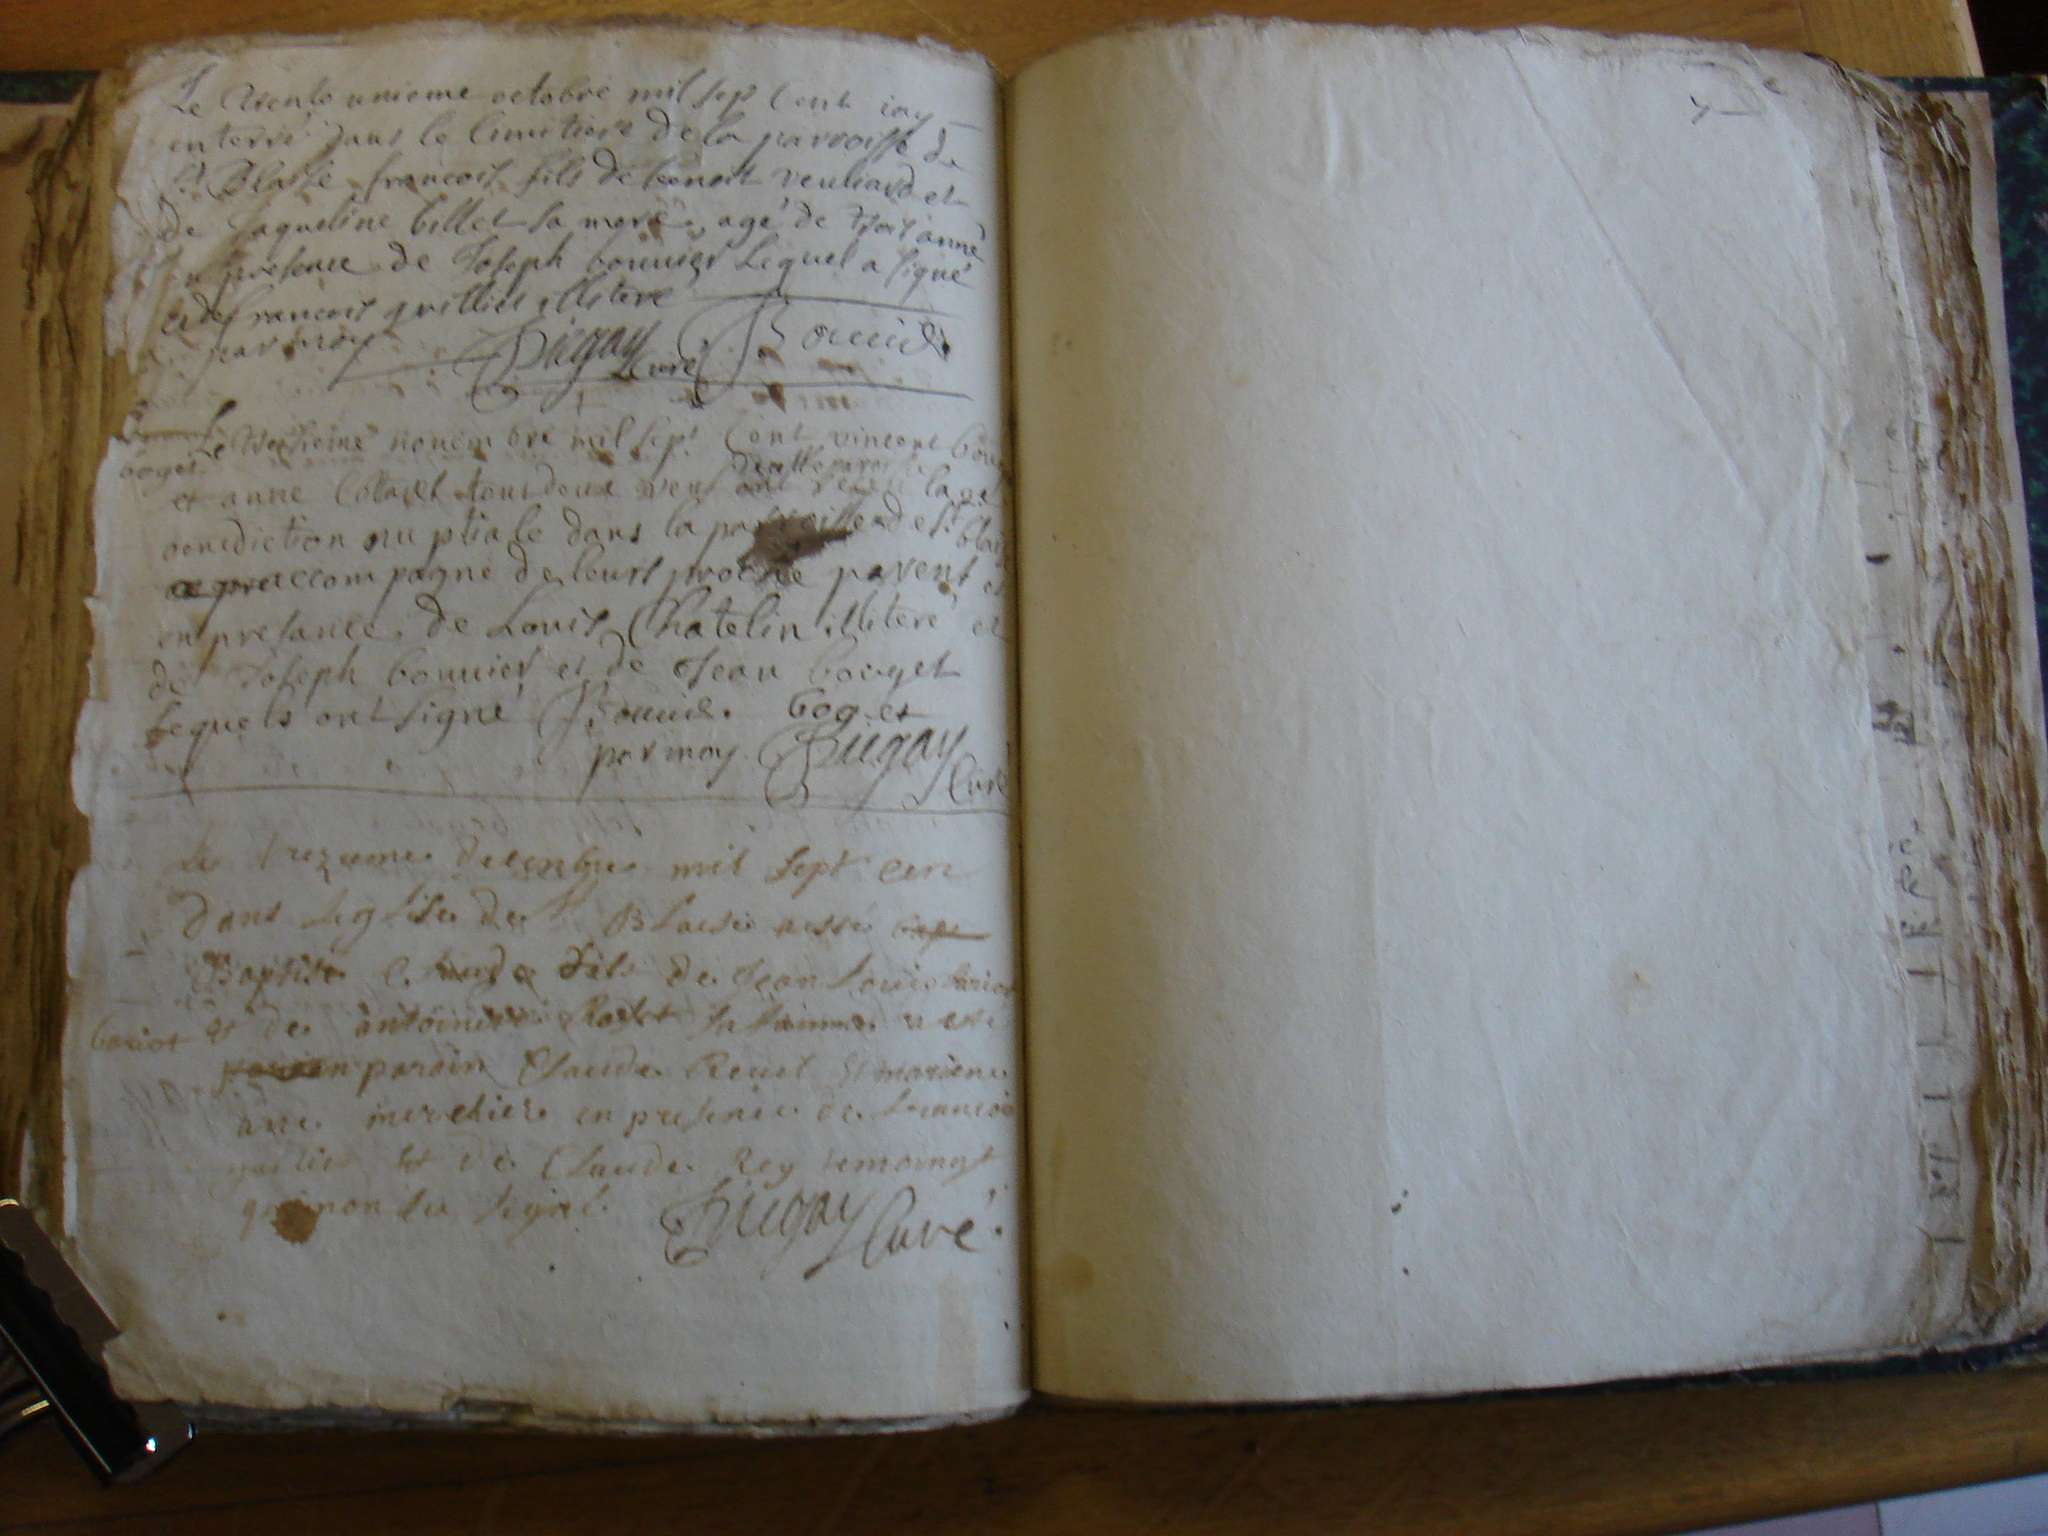 Le trente unieme octobre mil sept cent iay
enterré dans le cimitiere de la parroisse de
St Blaise francois fils de benoit veuliard et
de Jaqueline billet sa mere, agé de trois anné
en presence de Joseph bouvier lequel a signé
et de francois illiteré
par moy Bugay Curé Bouvier
boget
Le treisieme novembre mil sept cent vincent
de cette paroisse
et anne tous deux ont receu la
benediction nuptiale dans la parroisse de St blaise
accompagné de leurs proche parent et
en presance de Louis Chatelin illiteré et
de Joseph bouvier et de Jean boget
lequels ont signé Bouvier. boget
par moy Bugay
Curé
Le trezieme decembre mil sept cent
dans leglise de St Blaise a esté
Baptise Claude fils de Jean Louis bariot
bariot et de antoinette sa femme a esté
parain Claude et maraine
anne merchier en presence de francois
et de Claude Rey temoingt
qui non su signé. Bugay Curé.